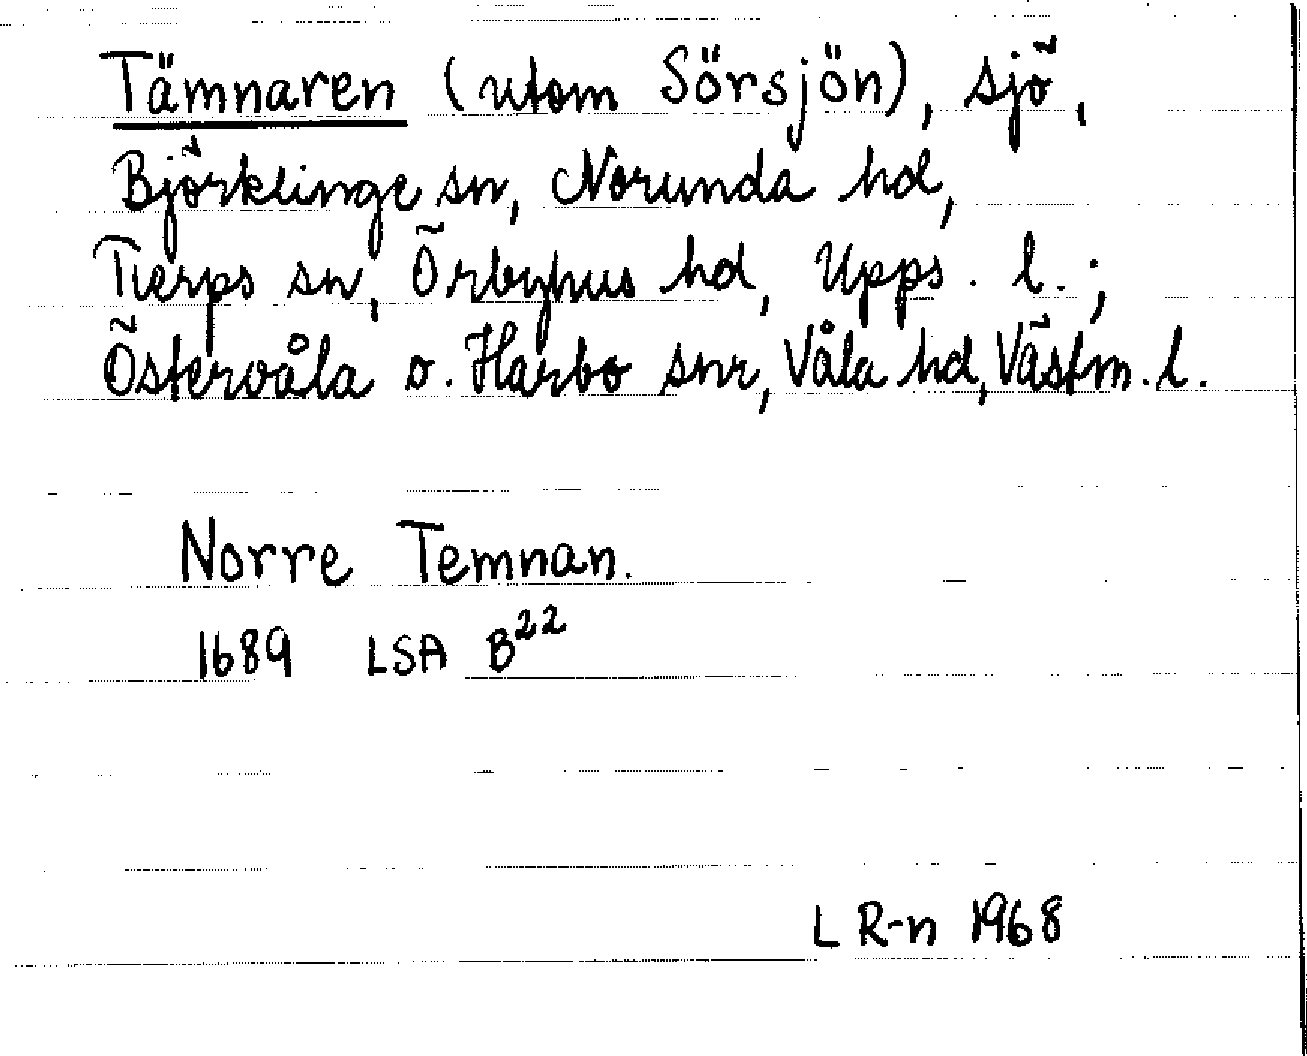 Tämnaren (utom Sörsjön), sjö,
Björklinge sn, Norunda hd,
Tierps sn, Örbyhus hd, Upps. l.;
Östervåla o. Harbo snr, Våla hd, Västm. l.
Norre Temnan.
1689 LSA B²²
L R-n 1968